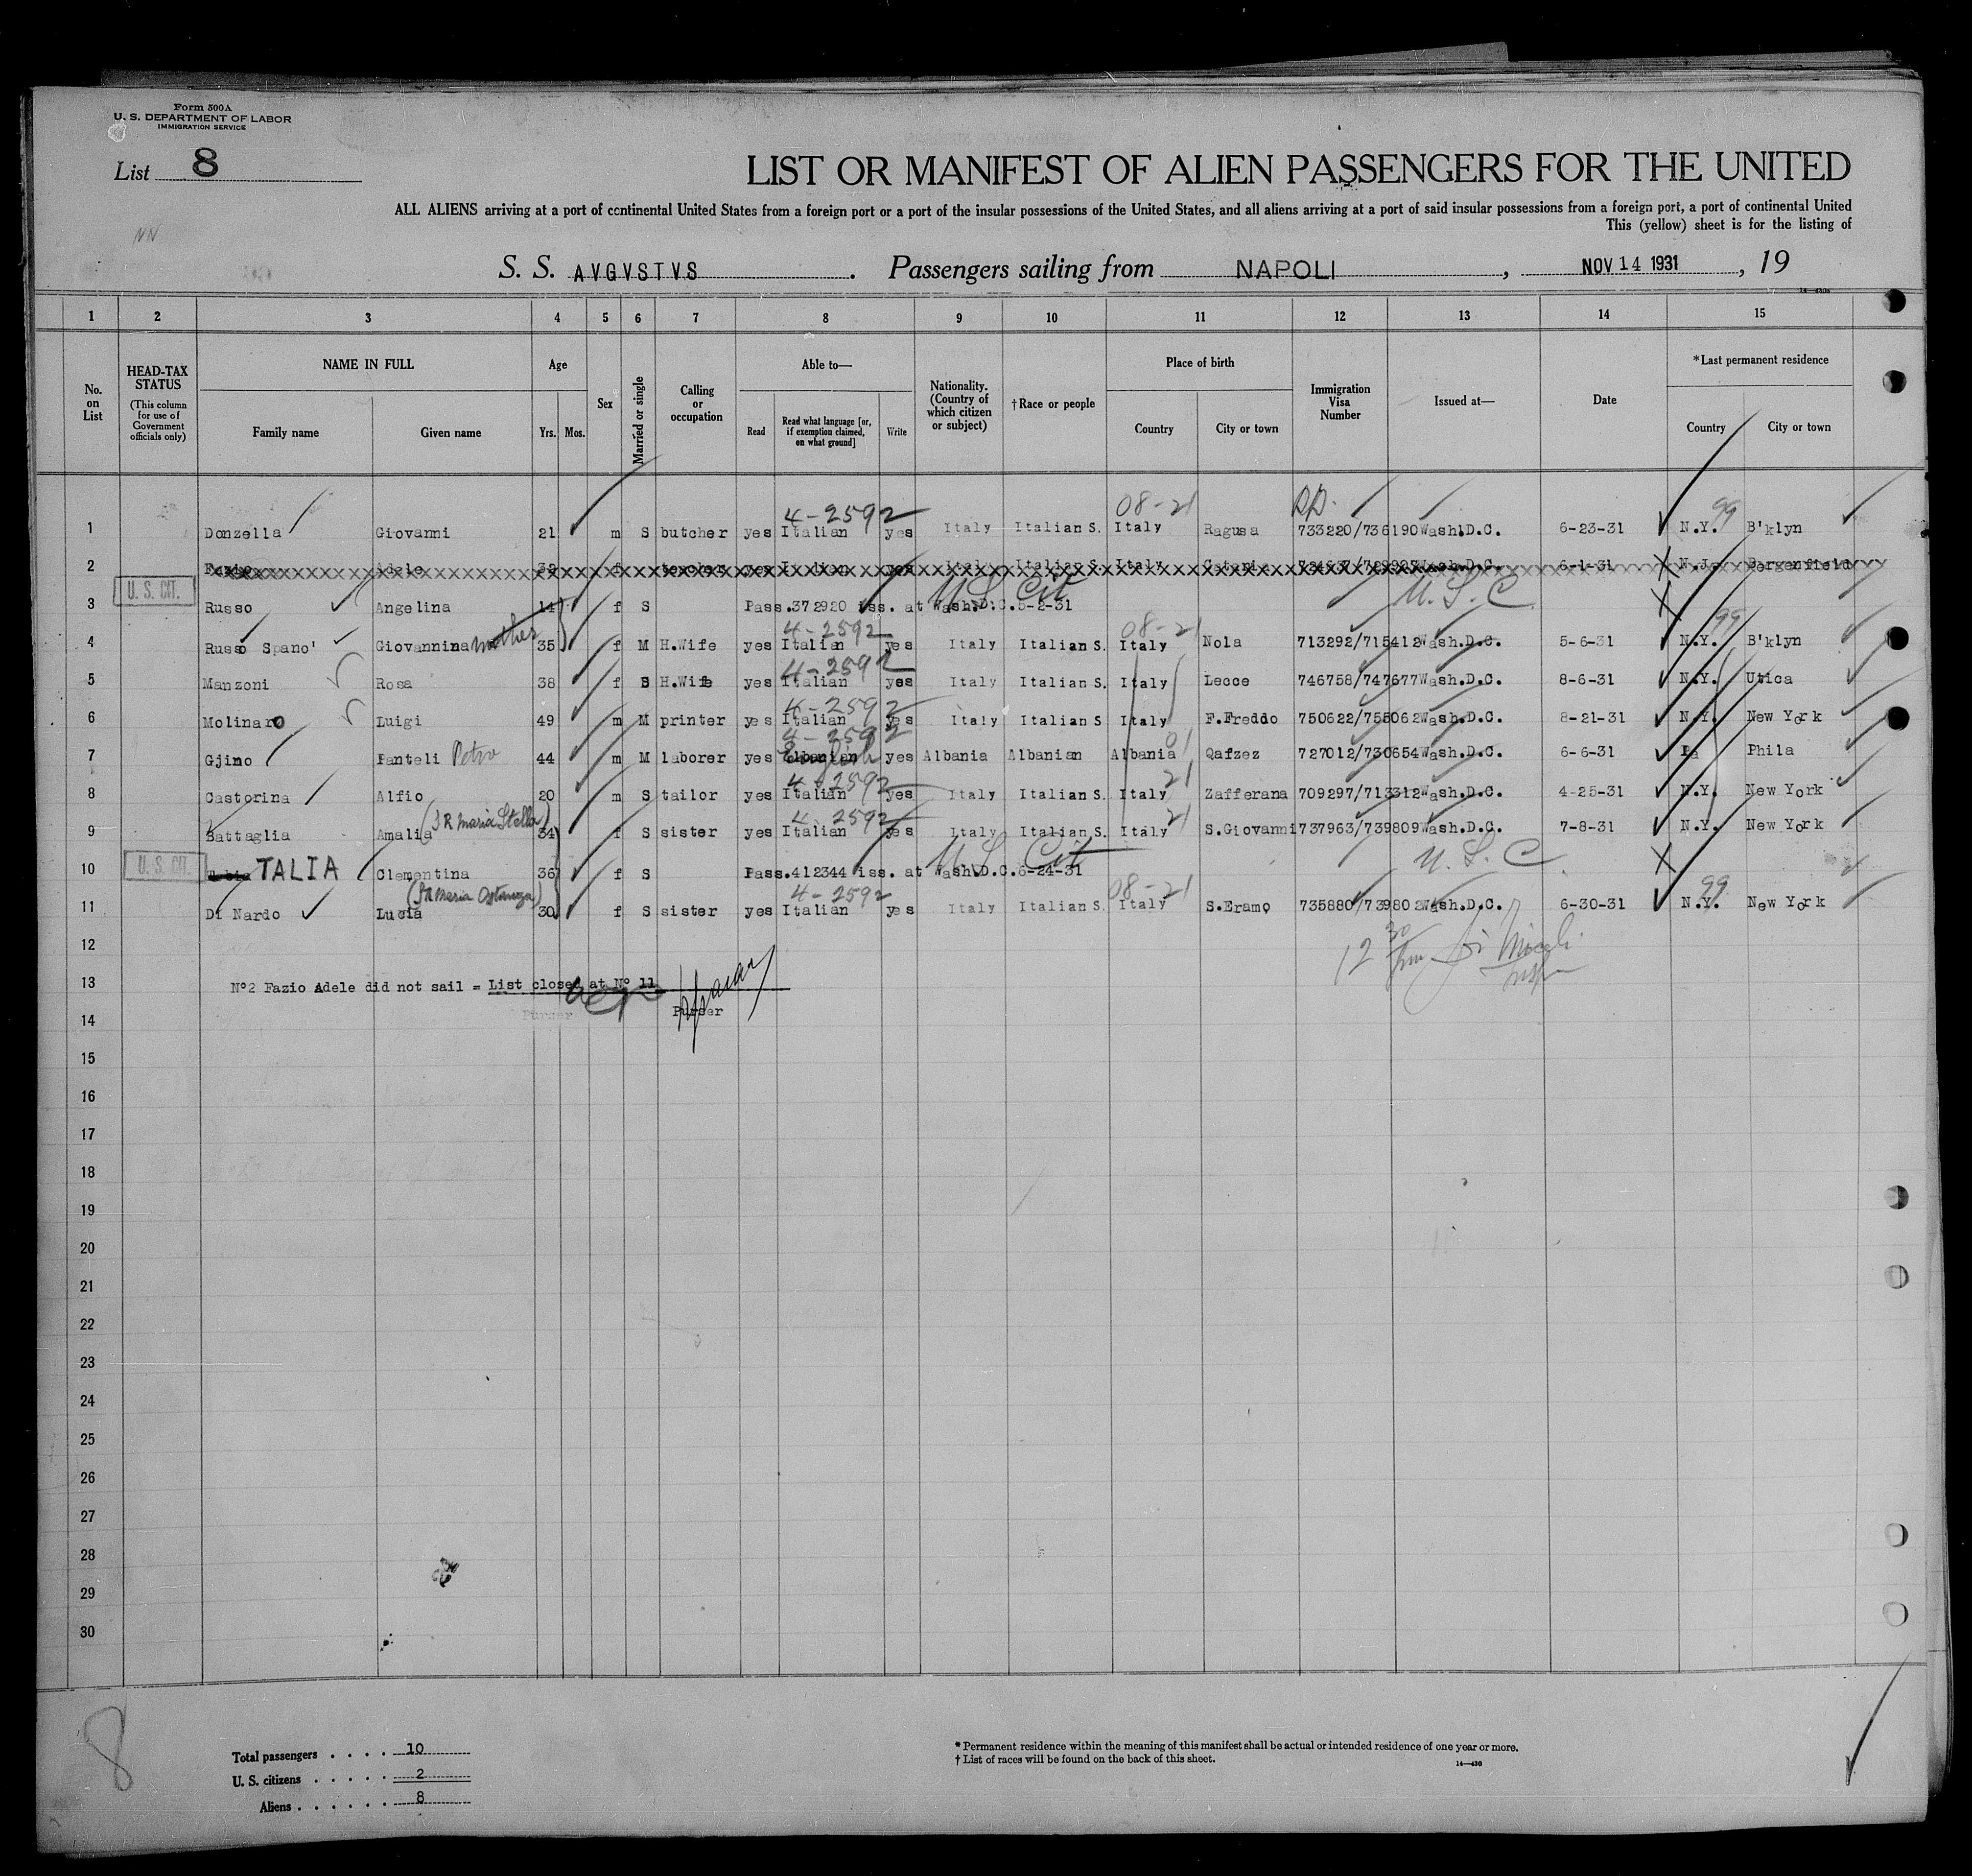 Form 500A
U. S. DEPARTMENT OF LABOR
IMMIGRATION SERVICE
List 8
LIST OR MANIFEST OF ALIEN PASSENGERS FOR THE UNITED
ALL ALIENS arriving at a port of continental United States from a foreign port or a port of the insular possessions of the United States, and all aliens arriving at a port of said insular possessions from a foreign port, a port of continental United
This (yellow) sheet is for the listing of
NN
S. S. AVGVSTVS. Passengers sailing from NAPOLI, NOV 14 1931, 19
1 2 3 4 5 6 7 8 9 10 11 12 13 14 15
No. on List
HEAD-TAX STATUS
(This column for use of Government officials only)
NAME IN FULL
Family name Given name
Age
Yrs. Mos.
Sex
Married or single
Calling or occupation
Able to—
Read
Read what language [or, if exemption claimed, on what ground]
Write
Nationality. (Country of which citizen or subject)
† Race or people
Place of birth
Country City or town
Immigration Visa Number
Issued at—
Date
* Last permanent residence
Country City or town
4-2592 08-21 99
1 Donzella Giovanni 21 m S butcher yes Italian yes Italy Italian S. Italy Ragusa 733220/736190 Wash.D.C. 6-23-31 N.Y. B'klyn
2 Fazio Adele f teacher yes Italian yes Italy Italian S. Italy Catania Wash.D.C. 6-1-31 N.J. Bergenfield
U. S. CIT. U.S. Cit U.S.C
3 Russo Angelina 14 f S Pass.372920 iss. at Wash.D.C.5-2-31
4-2592 08-21 99
4 Russo Spano' Giovannina mother 35 f M H.Wife yes Italian yes Italy Italian S. Italy Nola 713292/715412 Wash.D.C. 5-6-31 N.Y. B'klyn
4-2592
5 Manzoni Rosa 38 f S H.Wife yes Italian yes Italy Italian S. Italy Lecce 746758/747677 Wash.D.C. 8-6-31 N.Y. Utica
4-2592
6 Molinaro Luigi 49 m M printer yes Italian yes Italy Italian S. Italy F.Freddo 750622/755062 Wash.D.C. 8-21-31 N.Y. New York
4-2592 01
7 Gjino Panteli Petro 44 m M laborer yes Albanian English yes Albania Albanian Albania Qafzez 727012/730654 Wash.D.C. 6-6-31 Pa Phila
4-2592 21
8 Castorina Alfio 20 m S tailor yes Italian yes Italy Italian S. Italy Zafferana 709297/713312 Wash.D.C. 4-25-31 N.Y. New York
(SR Maria Stella) 4-2592 21
9 Battaglia Amalia 34 f S sister yes Italian yes Italy Italian S. Italy S.Giovanni 737963/739809 Wash.D.C. 7-8-31 N.Y. New York
U. S. CIT. U.S. Cit U.S.C
10 TALIA Clementina 36 f S Pass.412344 iss. at Wash.D.C.6-24-31
4-2592 08-21 99
11 Di Nardo Lucia 30 f S sister yes Italian yes Italy Italian S. Italy S.Eramo 735880/739802 Wash.D.C. 6-30-31 N.Y. New York
12
13 N°2 Fazio Adele did not sail = List closed at N° 11
14 Purser Purser
15
16
17
18
19
20
21
22
23
24
25
26
27
28
29
30
8
Total passengers . . . . 10
U. S. citizens . . . . . 2
Aliens . . . . . . 8
* Permanent residence within the meaning of this manifest shall be actual or intended residence of one year or more.
† List of races will be found on the back of this sheet.
14—430